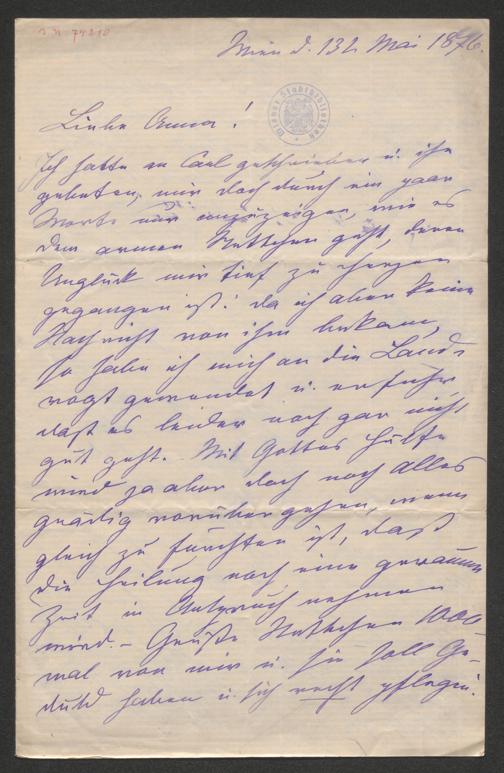 I. N. 79210
Wien d. 13t. Mai 1876.
Wiener Stadtbibliothek
Liebe Anna!
Ich hatte an Carl geschrieben u. ihn
gebeten, mir doch durch ein paar
Worte nur anzuzeigen, wie es
dem armen Nettchen geht, deren
Unglück mir tief zu Herzen
gegangen ist! da ich aber keine
Nachricht von ihm bekam,
so habe ich mich an die Lands
vogt gewendet u. erfuhr
daß es leider noch gar nicht
gut geht. Mit Gottes Hülfe
wird ja aber doch noch Alles
gnädig vorübergehen, wenn
gleich zu fürchten ist, daß
die Heilung noch eine geraume
Zeit in Anspruch nehmen
wird. - Grüße Nettchen 1000
mal von mir u. sie soll Ge-
duld haben u. sich recht pflegen.